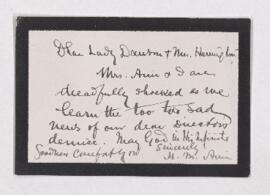 Dear Lady Dawson & Mrs. Harrington
Mrs. Ann & I are
dreadfully shocked as we
learn the too too sad
news of our dear Directory
demise. May God in His Infinite
Goodness Comfort you Sincerely